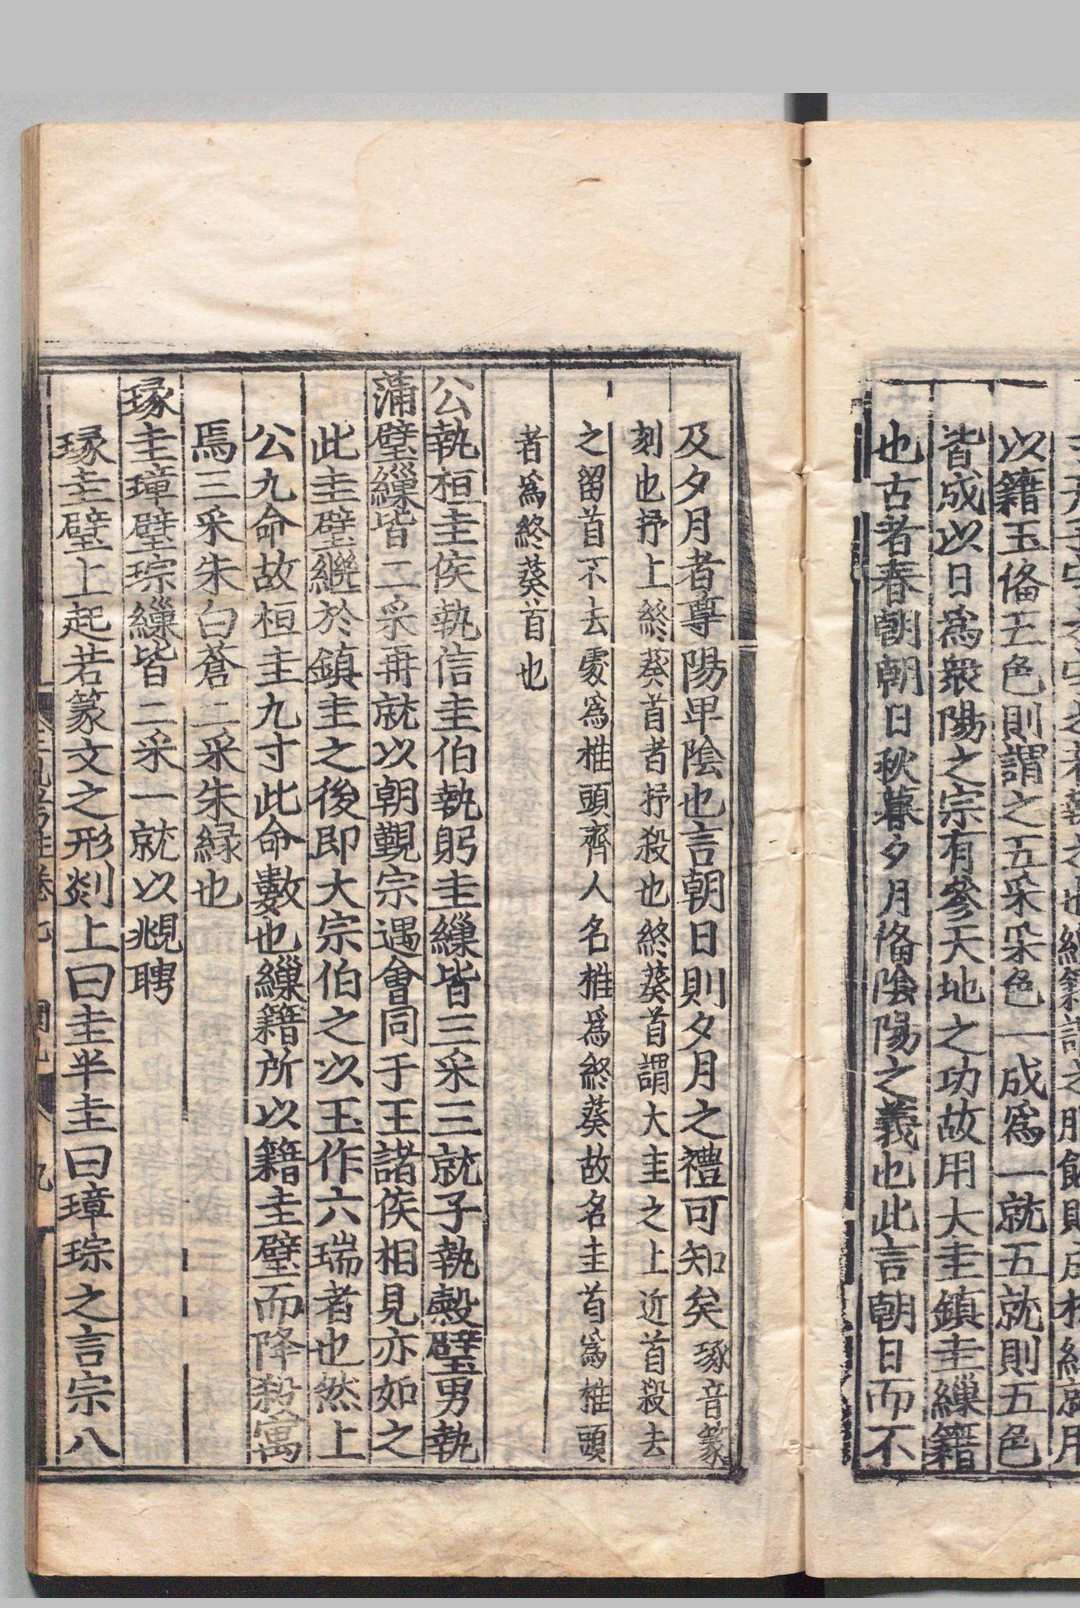 以籍玉俻五色則謂之五采采色一成爲一就五就則五色
皆成以日爲衆陽之宗有參天地之功故用大圭鎮圭繅籍
也古者春朝朝日秋暮夕月俻陰陽之義也此言朝日而不
及夕月者尊陽卑陰也言朝日則夕月之禮可知矣琢音篆
刻也抒上終葵首者抒殺也終葵首謂大圭之上近首殺去
之留首不去處爲椎頭齊人名椎爲終葵故名圭首爲椎頭
者爲終葵首也
公執桓圭侯執信圭伯執躬圭繅皆三采三就子執穀璧男執
蒲璧繅皆二采再就以朝覲宗遇會同于王諸侯相見亦如之
此圭璧繼於鎮圭之後即大宗伯之以玉作六瑞者也然上
公九命故桓圭九寸此命數也繅籍所以籍圭璧而降殺寓
焉三采朱白蒼二采朱緑也
瑑圭璋璧琮繅皆二采一就以覜聘
瑑圭璧上起若篆文之形剡上曰圭半圭曰璋琮之言宗八